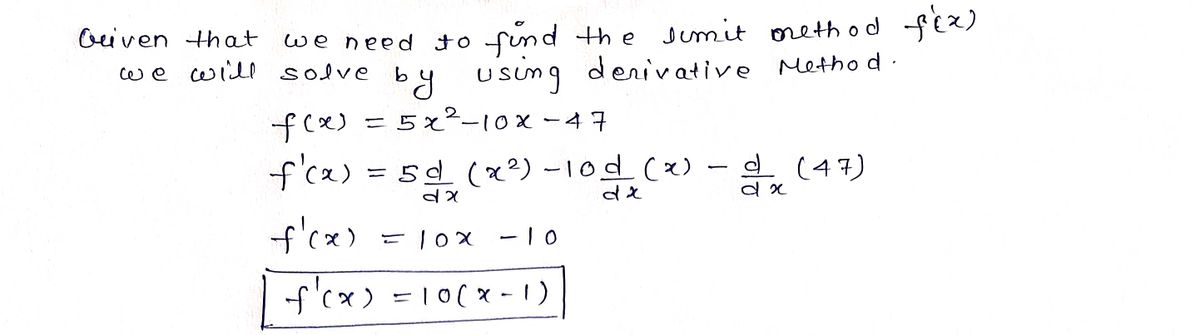 Given that we need to find the limit method f'(x)
we will solve by using derivative Method.
f(x) = 5x²-10x-47
f'(x) = 5 d/dx (x²) -10 d/dx (x) - d/dx (47)
f'(x) = 10x -10
f'(x) = 10(x-1)